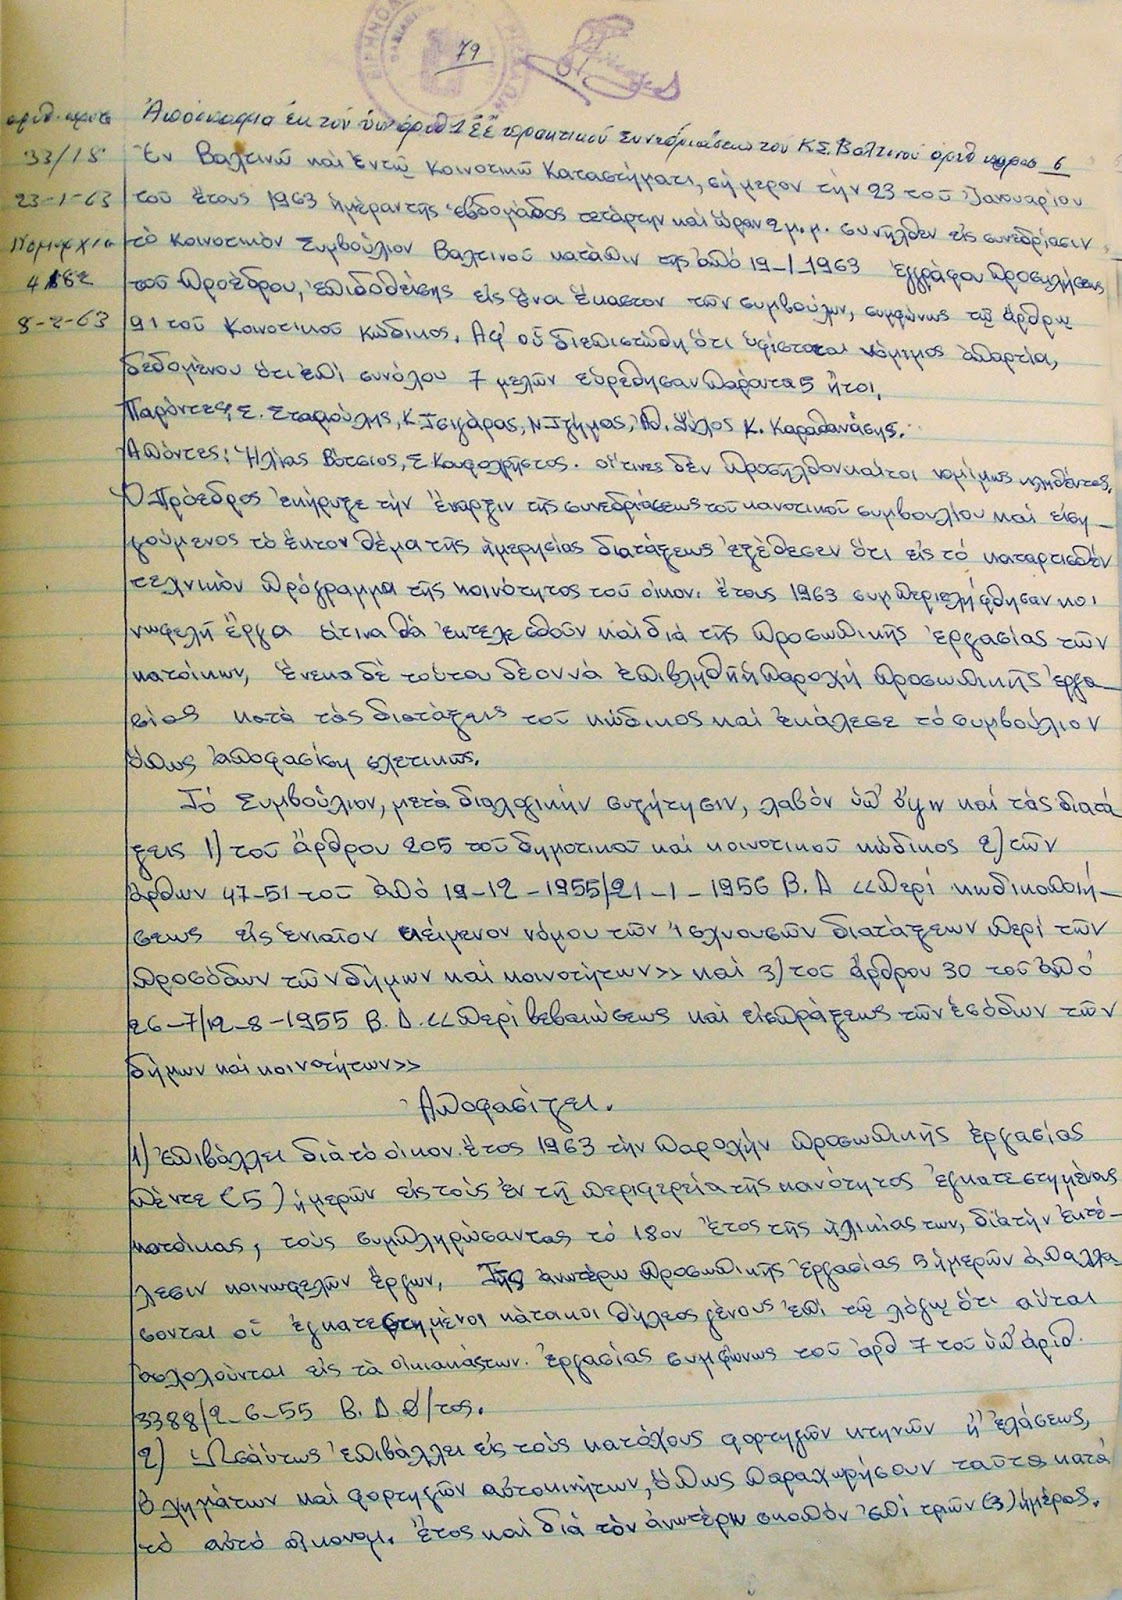 79
αριθ. πρωτ.
33/18
23-1-63
Νομαρχία
4182
8-2-63
Ἀπόσπασμα ἐκ τοῦ ὑπ' ἀριθ 1 πρακτικοῦ Συνεδριάσεως τοῦ Κ.Σ. Βαλτινοῦ ἀριθ πράξ 6
Ἐν Βαλτινῷ καὶ ἐν τῷ Κοινοτικῷ Καταστήματι, σήμερον τὴν 23 τοῦ Ἰανουαρίου
τοῦ ἔτους 1963 ἡμέραν τῆς ἑβδομάδος τετάρτην καὶ ὥραν 2 μ.μ. συνῆλθεν εἰς συνεδρίασιν
τὸ Κοινοτικὸν Συμβούλιον Βαλτινοῦ κατόπιν τῆς ἀπὸ 19-1-1963 ἐγγράφου προσκλήσεως
τοῦ Προέδρου, ἐπιδοθείσης εἰς ἕνα ἕκαστον τῶν συμβούλων, συμφώνως τῷ ἄρθρῳ
91 τοῦ Κοινοτικοῦ Κώδικος. Ἀφ' οὗ διεπιστώθη ὅτι ὑφίσταται νόμιμος ἀπαρτία,
δεδομένου ὅτι ἐπὶ συνόλου 7 μελῶν εὑρέθησαν παρόντα 5 ἤτοι.
Παρόντες: Σ. Σταμούλης, Κ. Τσιγάρας, Ν Τζήμας, Ἀθ. Ψύλος Κ. Καραθανάσης.
Ἀπόντες: Ἠλίας Βότσιος, Σ Κουφοχρῆστος. οἵτινες δὲν προσῆλθον καίτοι νομίμως κληθέντες.
Ὁ Πρόεδρος ἐκήρυξε τὴν ἔναρξιν τῆς συνεδριάσεως τοῦ κοινοτικοῦ συμβουλίου καὶ εἰση-
γούμενος τὸ ἕκτον θέμα τῆς ἡμερησίας διατάξεως ἐξέθεσεν ὅτι εἰς τὸ καταρτισθὲν
τεχνικὸν πρόγραμμα τῆς κοινότητος τοῦ οἰκον. ἔτους 1963 συμπεριελήφθησαν κοι
νωφελῆ ἔργα ἅτινα θὰ ἐκτελεσθοῦν καὶ διὰ τῆς προσωπικῆς ἐργασίας τῶν
κατοίκων, ἕνεκα δὲ τούτου δέον νὰ ἐπιβληθῇ ἡ παροχὴ προσωπικῆς ἐργα-
σίας κατὰ τὰς διατάξεις τοῦ κώδικος καὶ ἐκάλεσε τὸ συμβούλιον
ὅπως ἀποφασίσῃ σχετικῶς.
Τὸ Συμβούλιον, μετὰ διαλογικὴν συζήτησιν, λαβὸν ὑπ' ὄψιν καὶ τὰς διατά
ξεις 1) τοῦ ἄρθρου 205 τοῦ δημοτικοῦ καὶ κοινοτικοῦ κώδικος 2) τῶν
ἄρθρων 47-51 τοῦ ἀπὸ 19-12-1955/21-1-1956 Β. Δ <<περὶ κωδικοποιή-
σεως εἰς ἑνιαῖον κείμενον νόμου τῶν ἰσχυουσῶν διατάξεων περὶ τῶν
προσόδων τῶν δήμων καὶ κοινοτήτων>> καὶ 3) τοῦ ἄρθρου 30 τοῦ ἀπὸ
26-7/12-8-1955 Β. Δ. <<περὶ βεβαιώσεως καὶ εἰσπράξεως τῶν ἐσόδων τῶν
δήμων καὶ κοινοτήτων>>
Ἀποφασίζει.
1) ἐπιβάλλει διὰ τὸ οἰκον. ἔτος 1963 τὴν παροχὴν προσωπικῆς ἐργασίας
πέντε (5) ἡμερῶν εἰς τοὺς ἐν τῇ περιφερείᾳ τῆς κοινότητος ἐγκατεστημένους
κατοίκους, τοὺς συμπληρώσαντας τὸ 18ον ἔτος τῆς ἡλικίας των, διὰ τὴν ἐκτέ-
λεσιν κοινωφελῶν ἔργων. Τῆς ἀνωτέρω προσωπικῆς ἐργασίας 5 ἡμερῶν ἀπαλλά
σονται οἱ ἐγκατεστημένοι κάτοικοι θήλεος γένους ἐπὶ τῷ λόγῳ ὅτι αὗται
ἀσχολοῦνται εἰς τὰ οἰκιακάς των. ἐργασίας συμφώνως τοῦ ἀρθ 7 τοῦ ὑπ' ἀριθ.
3388/2-6-55 Β. Δ. Δ/τος.
2) Ὡσαύτως ἐπιβάλλει εἰς τοὺς κατόχους φορτηγῶν κτηνῶν ἢ ἐλάσεως,
ὀχημάτων καὶ φορτηγῶν αὐτοκινήτων, ὅπως παραχωρήσουν ταῦτα κατὰ
τὸ αὐτὸ οἰκονομ. ἔτος καὶ διὰ τὸν ἀνωτέρω σκοπὸν ἐπὶ τριῶν (3) ἡμέρας.